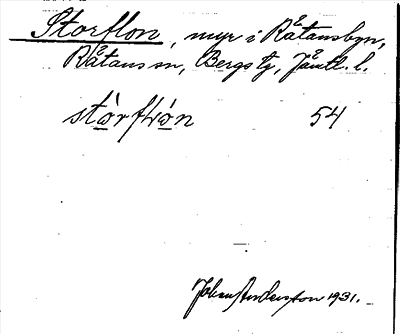 Storflon, myr i Råtansbyn,
Råtans sn, Bergs tg, Jämtl. l.
stòrfłón 54
Johan Anderson 1931.